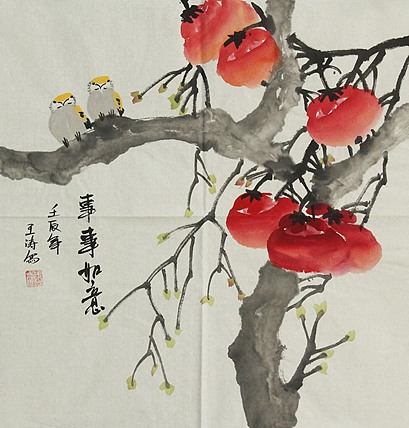 事事如意
壬辰年
王涛画